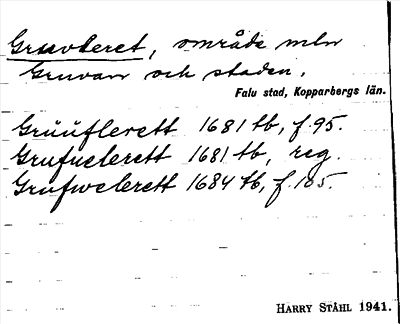 Gruvleret, område mln
Gruvan och staden.
Falu stad, Kopparbergs län.
Grüüflerett 1681 tb, f. 95.
Grufuelerett 1681 tb, reg.
Grufwelerett 1684 tb, f. 185.
HARRY STÅHL 1941.